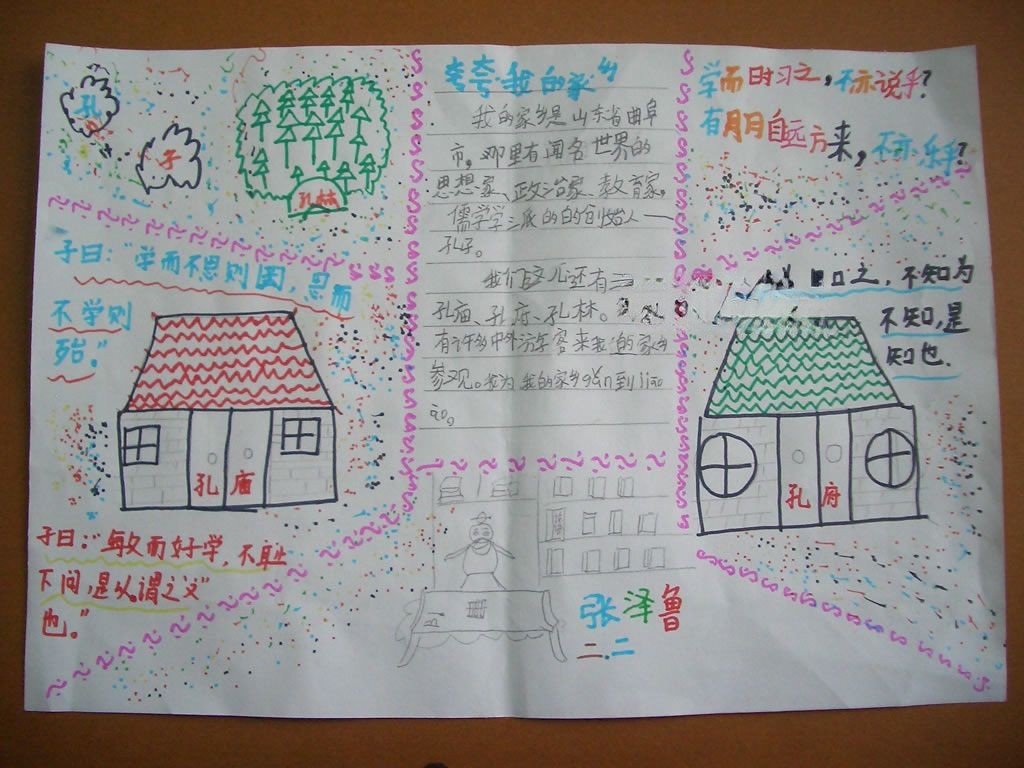 孔
子
孔林
子曰:"学而不思则罔,思而
不学则
殆。"
孔庙
子曰:"敏而好学,不耻
下问,是以谓之文
也。"
夸夸我的家乡
我的家乡是山东省曲阜
市,那里有闻名世界的
思想家、政治家、教育家,
儒学学派的的创始人——
孔子。
我们这儿还有三
孔庙、孔府、孔林。
有许多中外游客来我的家乡
参观。我为我的家乡gǎn到jiāo
ào。
张泽鲁
二.二
学而时习之,不亦说乎?
有朋自远方来,不亦乐乎?
之,不知为
不知,是
知也.
孔府